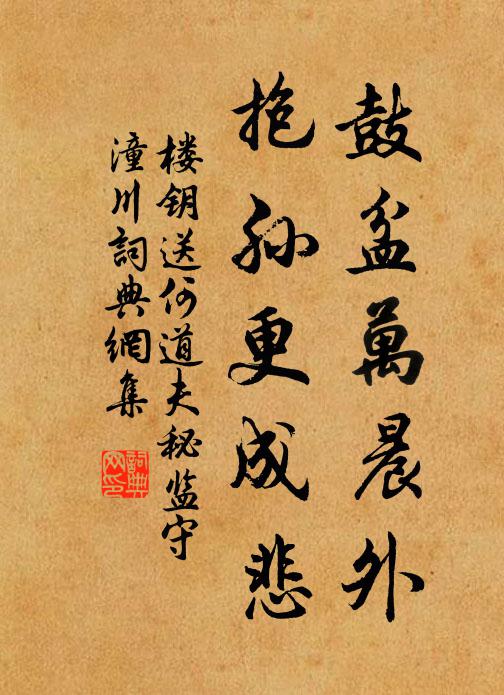 鼓盆萬晨外
抱孙更成悲
楼钥送何道夫秘监守
潼川詞典網集
詞典网印